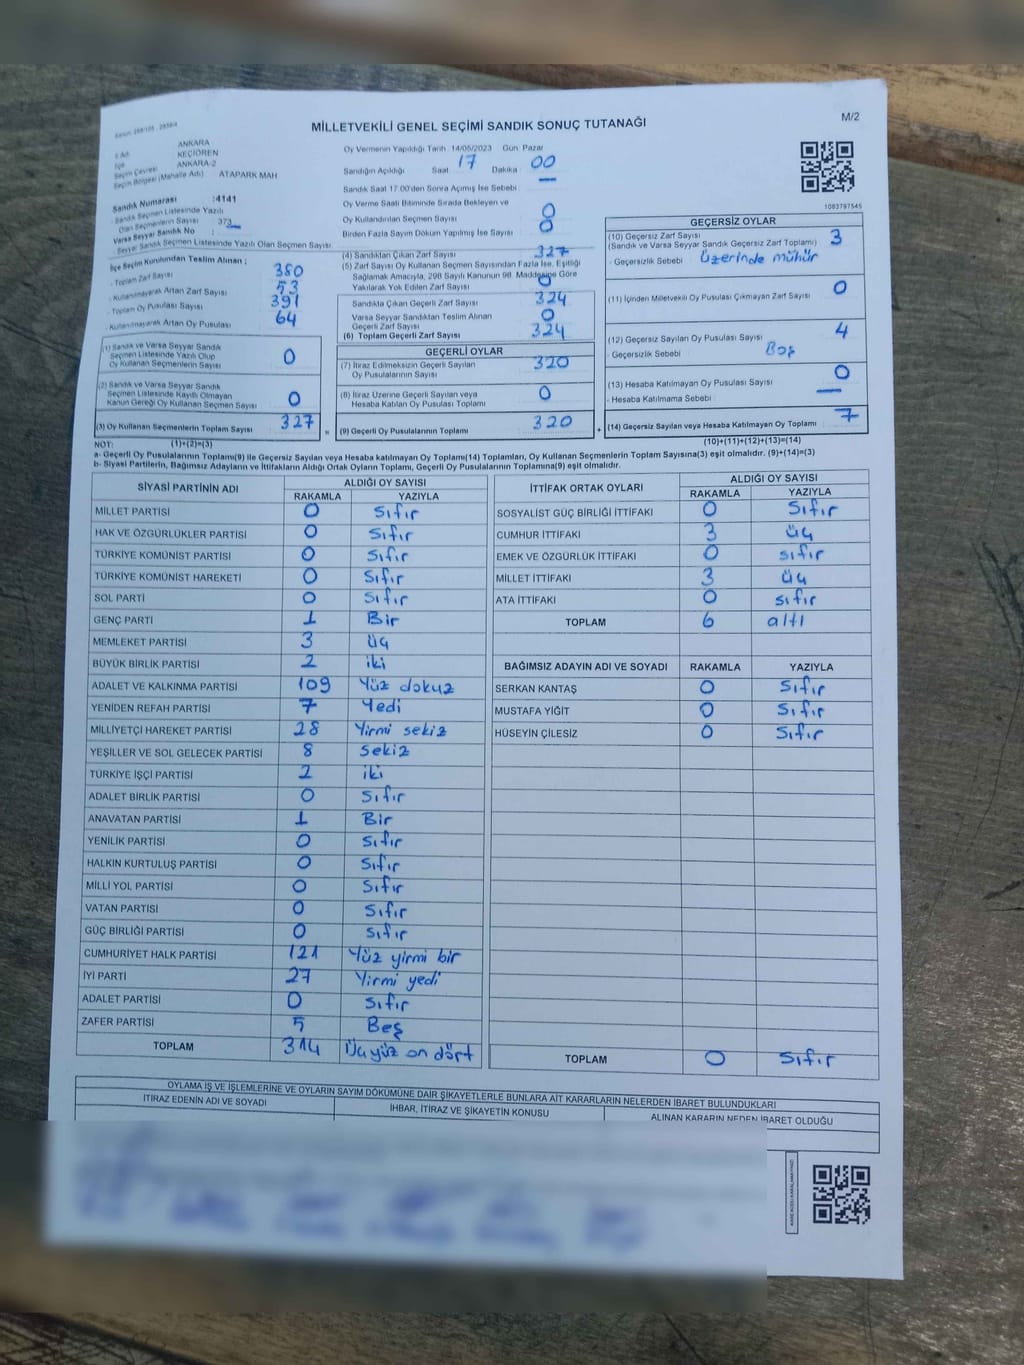 MİLLETVEKİLİ GENEL SEÇİMİ SANDIK SONUÇ TUTANAĞI
M/2
İl Adı ANKARA
İlçe KEÇİÖREN
Seçim Çevresi ANKARA-2
Seçim Bölgesi (Mahalle Adı) ATAPARK MAH
Sandık Numarası :4141
Sandık Seçmen Listesinde Yazılı
Olan Seçmenlerin Sayısı 373
Varsa Seyyar Sandık No :
Seyyar Sandık Seçmen Listesinde Yazılı Olan Seçmen Sayısı
Oy Vermenin Yapıldığı Tarih :14/05/2023 Gün: Pazar
Sandığın Açıldığı Saat 17 Dakika: 00
Sandık Saat 17.00'den Sonra Açılmış İse Sebebi: —
Oy Verme Saati Bitiminde Sırada Bekleyen ve
Oy Kullandırılan Seçmen Sayısı 0
Birden Fazla Sayım Döküm Yapılmış İse Sayısı 0
1083797545
İlçe Seçim Kurulundan Teslim Alınan ;
- Toplam Zarf Sayısı 380
- Kullanılmayarak Artan Zarf Sayısı 53
- Toplam Oy Pusulası Sayısı 391
- Kullanılmayarak Artan Oy Pusulası 64
(1) Sandık ve Varsa Seyyar Sandık
Seçmen Listesinde Yazılı Olup
Oy Kullanan Seçmenlerin Sayısı 0
(2) Sandık ve Varsa Seyyar Sandık
Seçmen Listesinde Kayıtlı Olmayan
Kanun Gereği Oy Kullanan Seçmen Sayısı 0
(3) Oy Kullanan Seçmenlerin Toplam Sayısı 327
(4) Sandıktan Çıkan Zarf Sayısı 327
(5) Zarf Sayısı Oy Kullanan Seçmen Sayısından Fazla İse, Eşitliği
Sağlamak Amacıyla, 298 Sayılı Kanunun 98. Maddesine Göre
Yakılarak Yok Edilen Zarf Sayısı 0
Sandıkta Çıkan Geçerli Zarf Sayısı 324
Varsa Seyyar Sandıktan Teslim Alınan
Geçerli Zarf Sayısı 0
(6) Toplam Geçerli Zarf Sayısı 324
GEÇERLİ OYLAR
(7) İtiraz Edilmeksizin Geçerli Sayılan
Oy Pusulalarının Sayısı 320
(8) İtiraz Üzerine Geçerli Sayılan veya
Hesaba Katılan Oy Pusulası Toplamı 0
= (9) Geçerli Oy Pusulalarının Toplamı 320 +
GEÇERSİZ OYLAR
(10) Geçersiz Zarf Sayısı 3
(Sandık ve Varsa Seyyar Sandık Geçersiz Zarf Toplamı)
- Geçersizlik Sebebi Üzerinde mühür
(11) İçinden Milletvekili Oy Pusulası Çıkmayan Zarf Sayısı 0
(12) Geçersiz Sayılan Oy Pusulası Sayısı 4
- Geçersizlik Sebebi Boş
(13) Hesaba Katılmayan Oy Pusulası Sayısı 0
- Hesaba Katılmama Sebebi —
(14) Geçersiz Sayılan veya Hesaba Katılmayan Oy Toplamı 7
NOT: (1)+(2)=(3) (10)+(11)+(12)+(13)=(14)
a- Geçerli Oy Pusulalarının Toplamı(9) ile Geçersiz Sayılan veya Hesaba Katılmayan Oy Toplamı(14) Toplamları, Oy Kullanan Seçmenlerin Toplam Sayısına(3) eşit olmalıdır. (9)+(14)=(3)
b- Siyasi Partilerin, Bağımsız Adayların ve İttifakların Aldığı Ortak Oyların Toplamı, Geçerli Oy Pusulalarının Toplamına(9) eşit olmalıdır.
SİYASİ PARTİNİN ADI ALDIĞI OY SAYISI
RAKAMLA YAZIYLA
MİLLET PARTİSİ 0 Sıfır
HAK VE ÖZGÜRLÜKLER PARTİSİ 0 Sıfır
TÜRKİYE KOMÜNİST PARTİSİ 0 Sıfır
TÜRKİYE KOMÜNİST HAREKETİ 0 Sıfır
SOL PARTİ 0 Sıfır
GENÇ PARTİ 1 Bir
MEMLEKET PARTİSİ 3 üç
BÜYÜK BİRLİK PARTİSİ 2 iki
ADALET VE KALKINMA PARTİSİ 109 Yüz dokuz
YENİDEN REFAH PARTİSİ 7 Yedi
MİLLİYETÇİ HAREKET PARTİSİ 28 Yirmi sekiz
YEŞİLLER VE SOL GELECEK PARTİSİ 8 Sekiz
TÜRKİYE İŞÇİ PARTİSİ 2 iki
ADALET BİRLİK PARTİSİ 0 Sıfır
ANAVATAN PARTİSİ 1 Bir
YENİLİK PARTİSİ 0 Sıfır
HALKIN KURTULUŞ PARTİSİ 0 Sıfır
MİLLİ YOL PARTİSİ 0 Sıfır
VATAN PARTİSİ 0 Sıfır
GÜÇ BİRLİĞİ PARTİSİ 0 Sıfır
CUMHURİYET HALK PARTİSİ 121 Yüz yirmi bir
İYİ PARTİ 27 Yirmi yedi
ADALET PARTİSİ 0 Sıfır
ZAFER PARTİSİ 5 Beş
TOPLAM 314 Üçyüz on dört
İTTİFAK ORTAK OYLARI ALDIĞI OY SAYISI
RAKAMLA YAZIYLA
SOSYALİST GÜÇ BİRLİĞİ İTTİFAKI 0 Sıfır
CUMHUR İTTİFAKI 3 üç
EMEK VE ÖZGÜRLÜK İTTİFAKI 0 sıfır
MİLLET İTTİFAKI 3 üç
ATA İTTİFAKI 0 sıfır
TOPLAM 6 altı
BAĞIMSIZ ADAYIN ADI VE SOYADI RAKAMLA YAZIYLA
SERKAN KANTAŞ 0 Sıfır
MUSTAFA YİĞİT 0 Sıfır
HÜSEYİN ÇİLESİZ 0 Sıfır
TOPLAM 0 Sıfır
OYLAMA İŞ VE İŞLEMLERİNE VE OYLARIN SAYIM DÖKÜMÜNE DAİR ŞİKAYETLERLE BUNLARA AİT KARARLARIN NELERDEN İBARET BULUNDUKLARI
İTİRAZ EDENİN ADI VE SOYADI İHBAR, İTİRAZ VE ŞİKAYETİN KONUSU ALINAN KARARIN NEDEN İBARET OLDUĞU